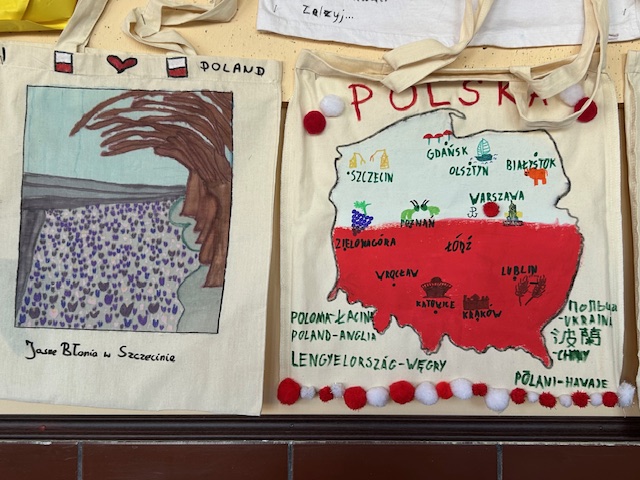 Zalzyj...
POLAND
Jasne Błonia w Szczecinie
POLSKA
GDAŃSK
SZCZECIN
OLSZTYN
BIAŁYSTOK
WARSZAWA
POZNAŃ
ZIELONAGÓRA
ŁÓDŹ
WROCŁAW
LUBLIN
KATOWICE
KRAKÓW
POLONIA-ŁACINA
POLAND-ANGLIA
LENGYELORSZÁG-WĘGRY
Польща
-UKRAINA
波蘭
-CHINY
PŌLANI-HAWAJE